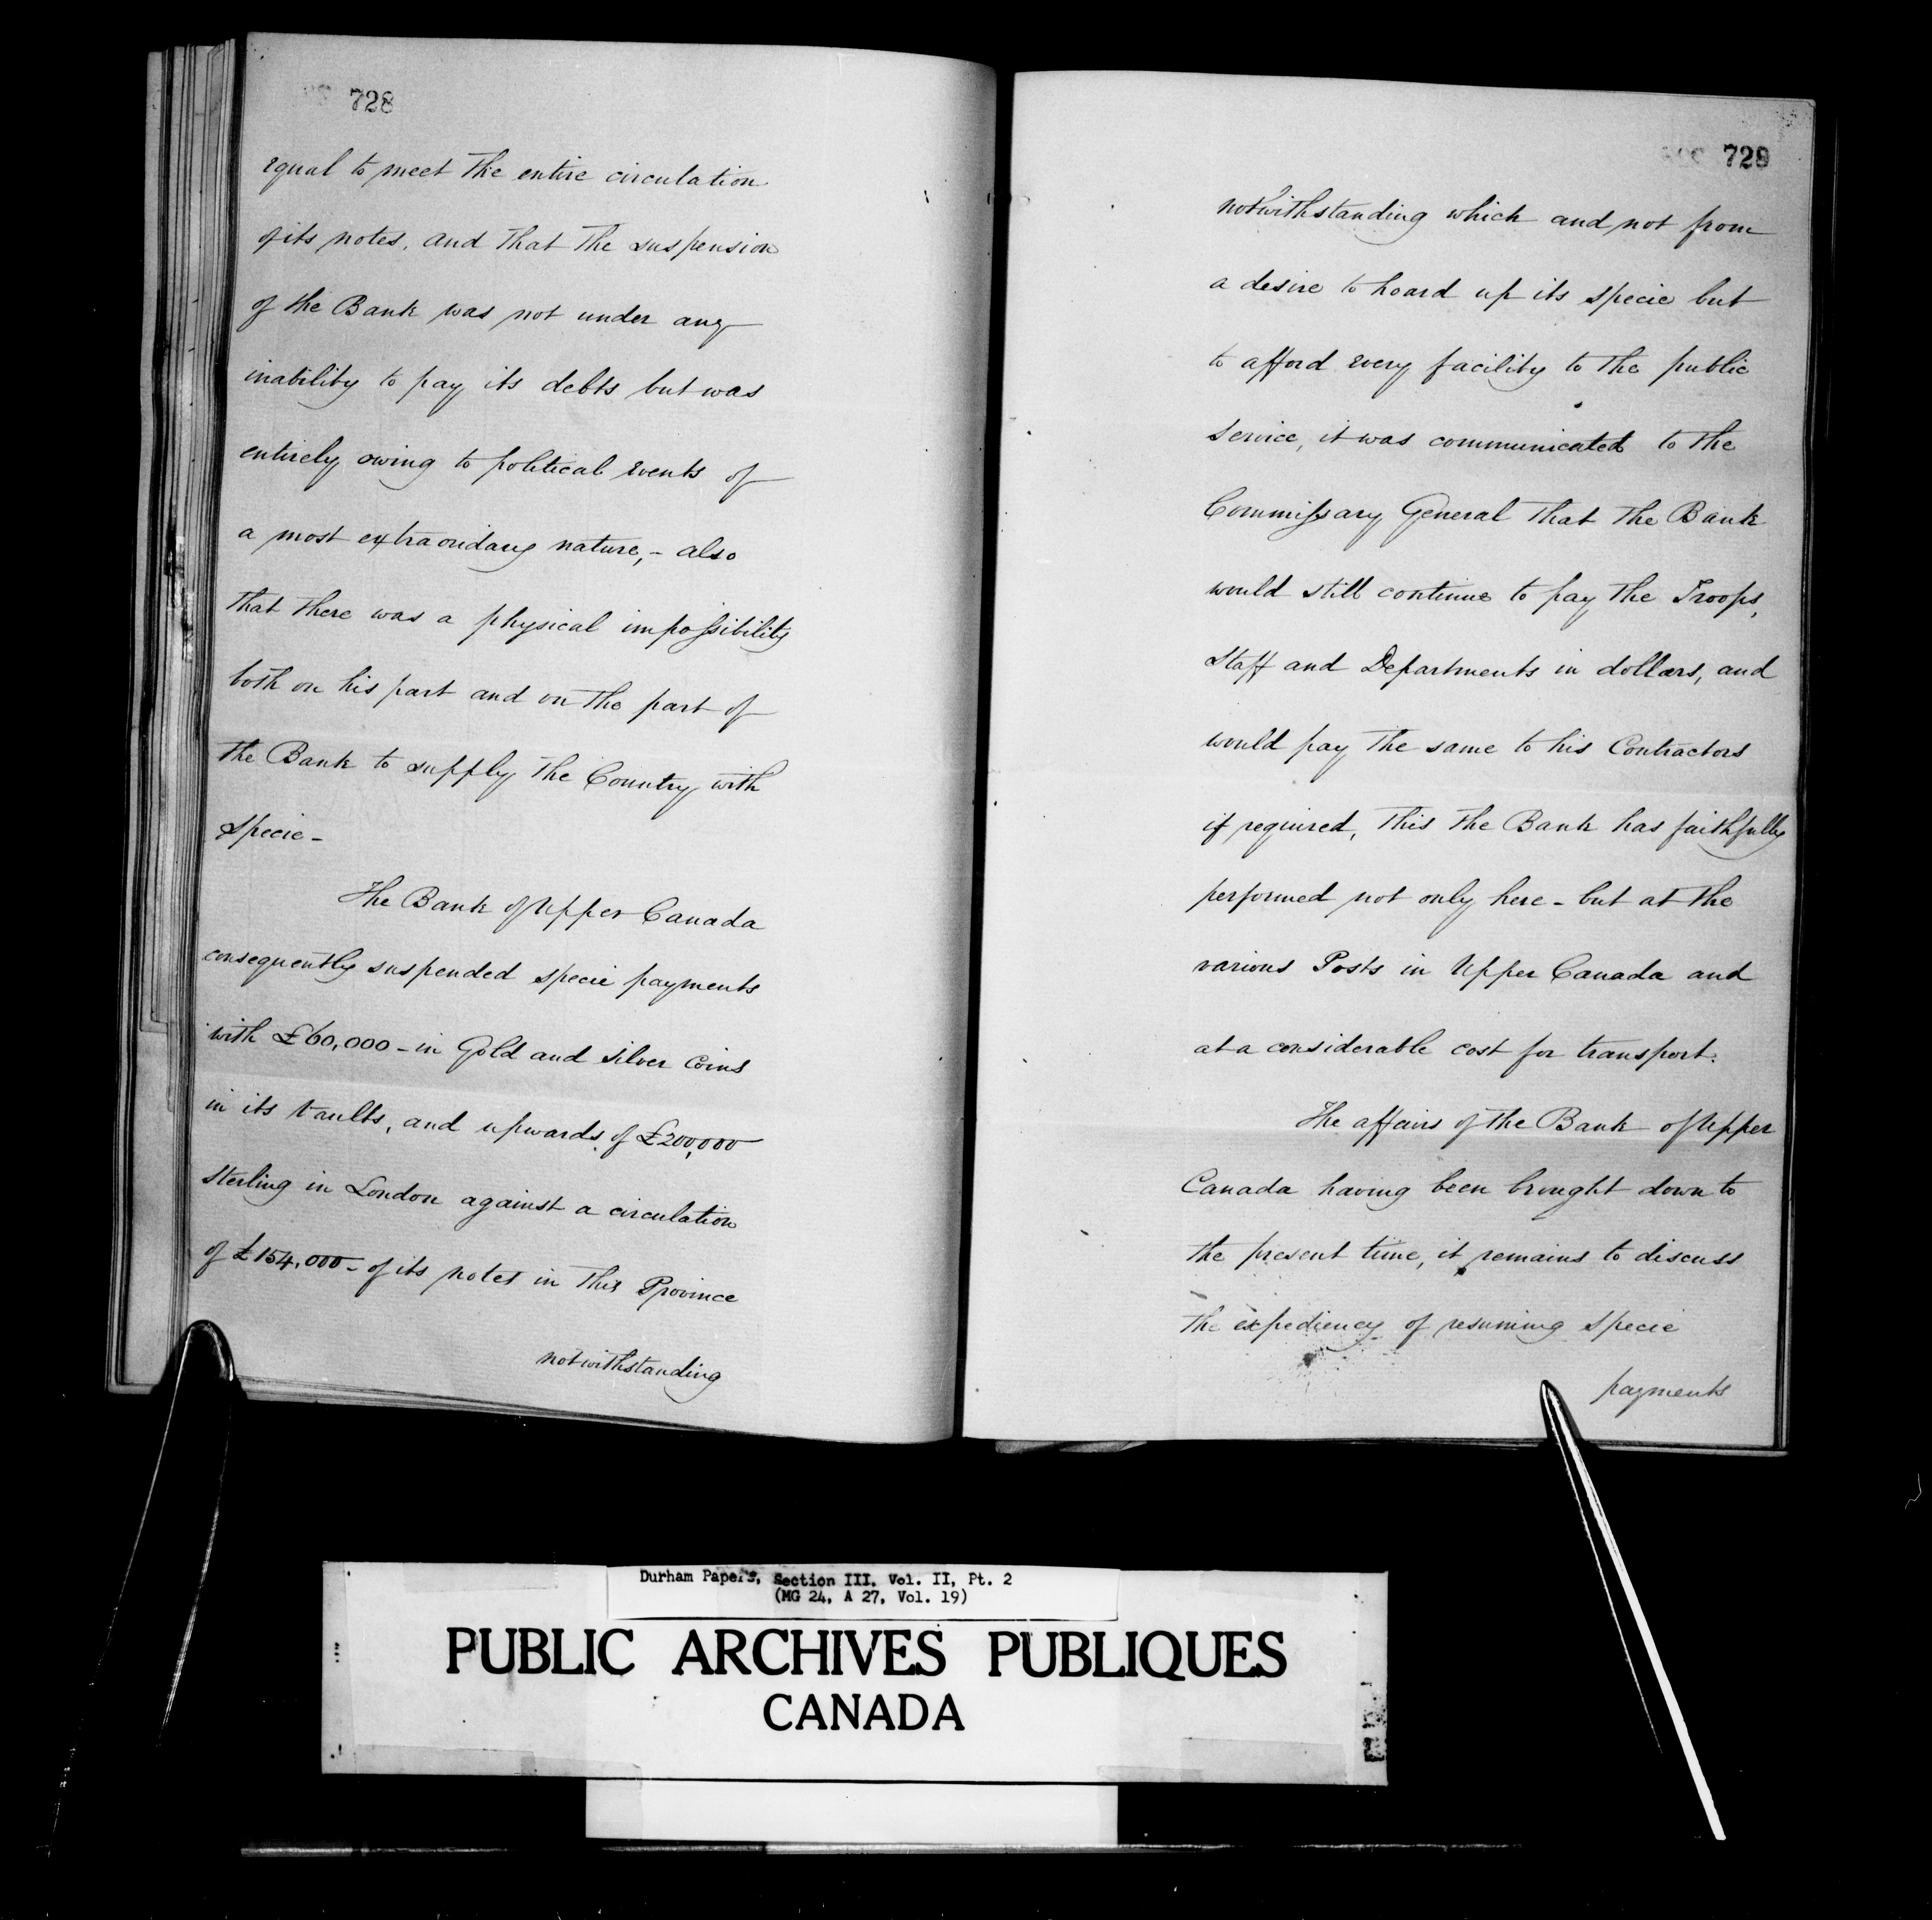 728
equal to meet the entire circulation
of its notes, and that the suspension
of the Bank was not under any
inability to pay its debts but was
entirely owing to political events of
a most extraoridary nature, - also
that there was a physical impossibility
both on his part and on the part of
the Bank to supply the Country with
specie -
The Bank of Upper Canada
consequently suspended specie payments
with £60,000 - in Gold and silver coins
in its vaults, and upwards of £200,000
sterling in London against a circulation
of £154,000 - of its notes in this Province
notwithstanding
729
notwithstanding which and not from
a desire to hoard up its specie but
to afford every facility to the public
service, it was communicated to the
Commissary General that the Bank
would still continue to pay the Troops,
Staff and Departments in dollars, and
would pay the same to his Contractors
if required, this the Bank has faithfully
performed not only here - but at the
various Posts in Upper Canada and
at a considerable cost for transport.
The affairs of the Bank of Upper
Canada having been brought down to
the present time, it remains to discuss
the expediency of resuming specie
payments
Durham Papers, Section III. Vol. II, Pt. 2
(MG 24, A 27, Vol. 19)
PUBLIC ARCHIVES PUBLIQUES
CANADA